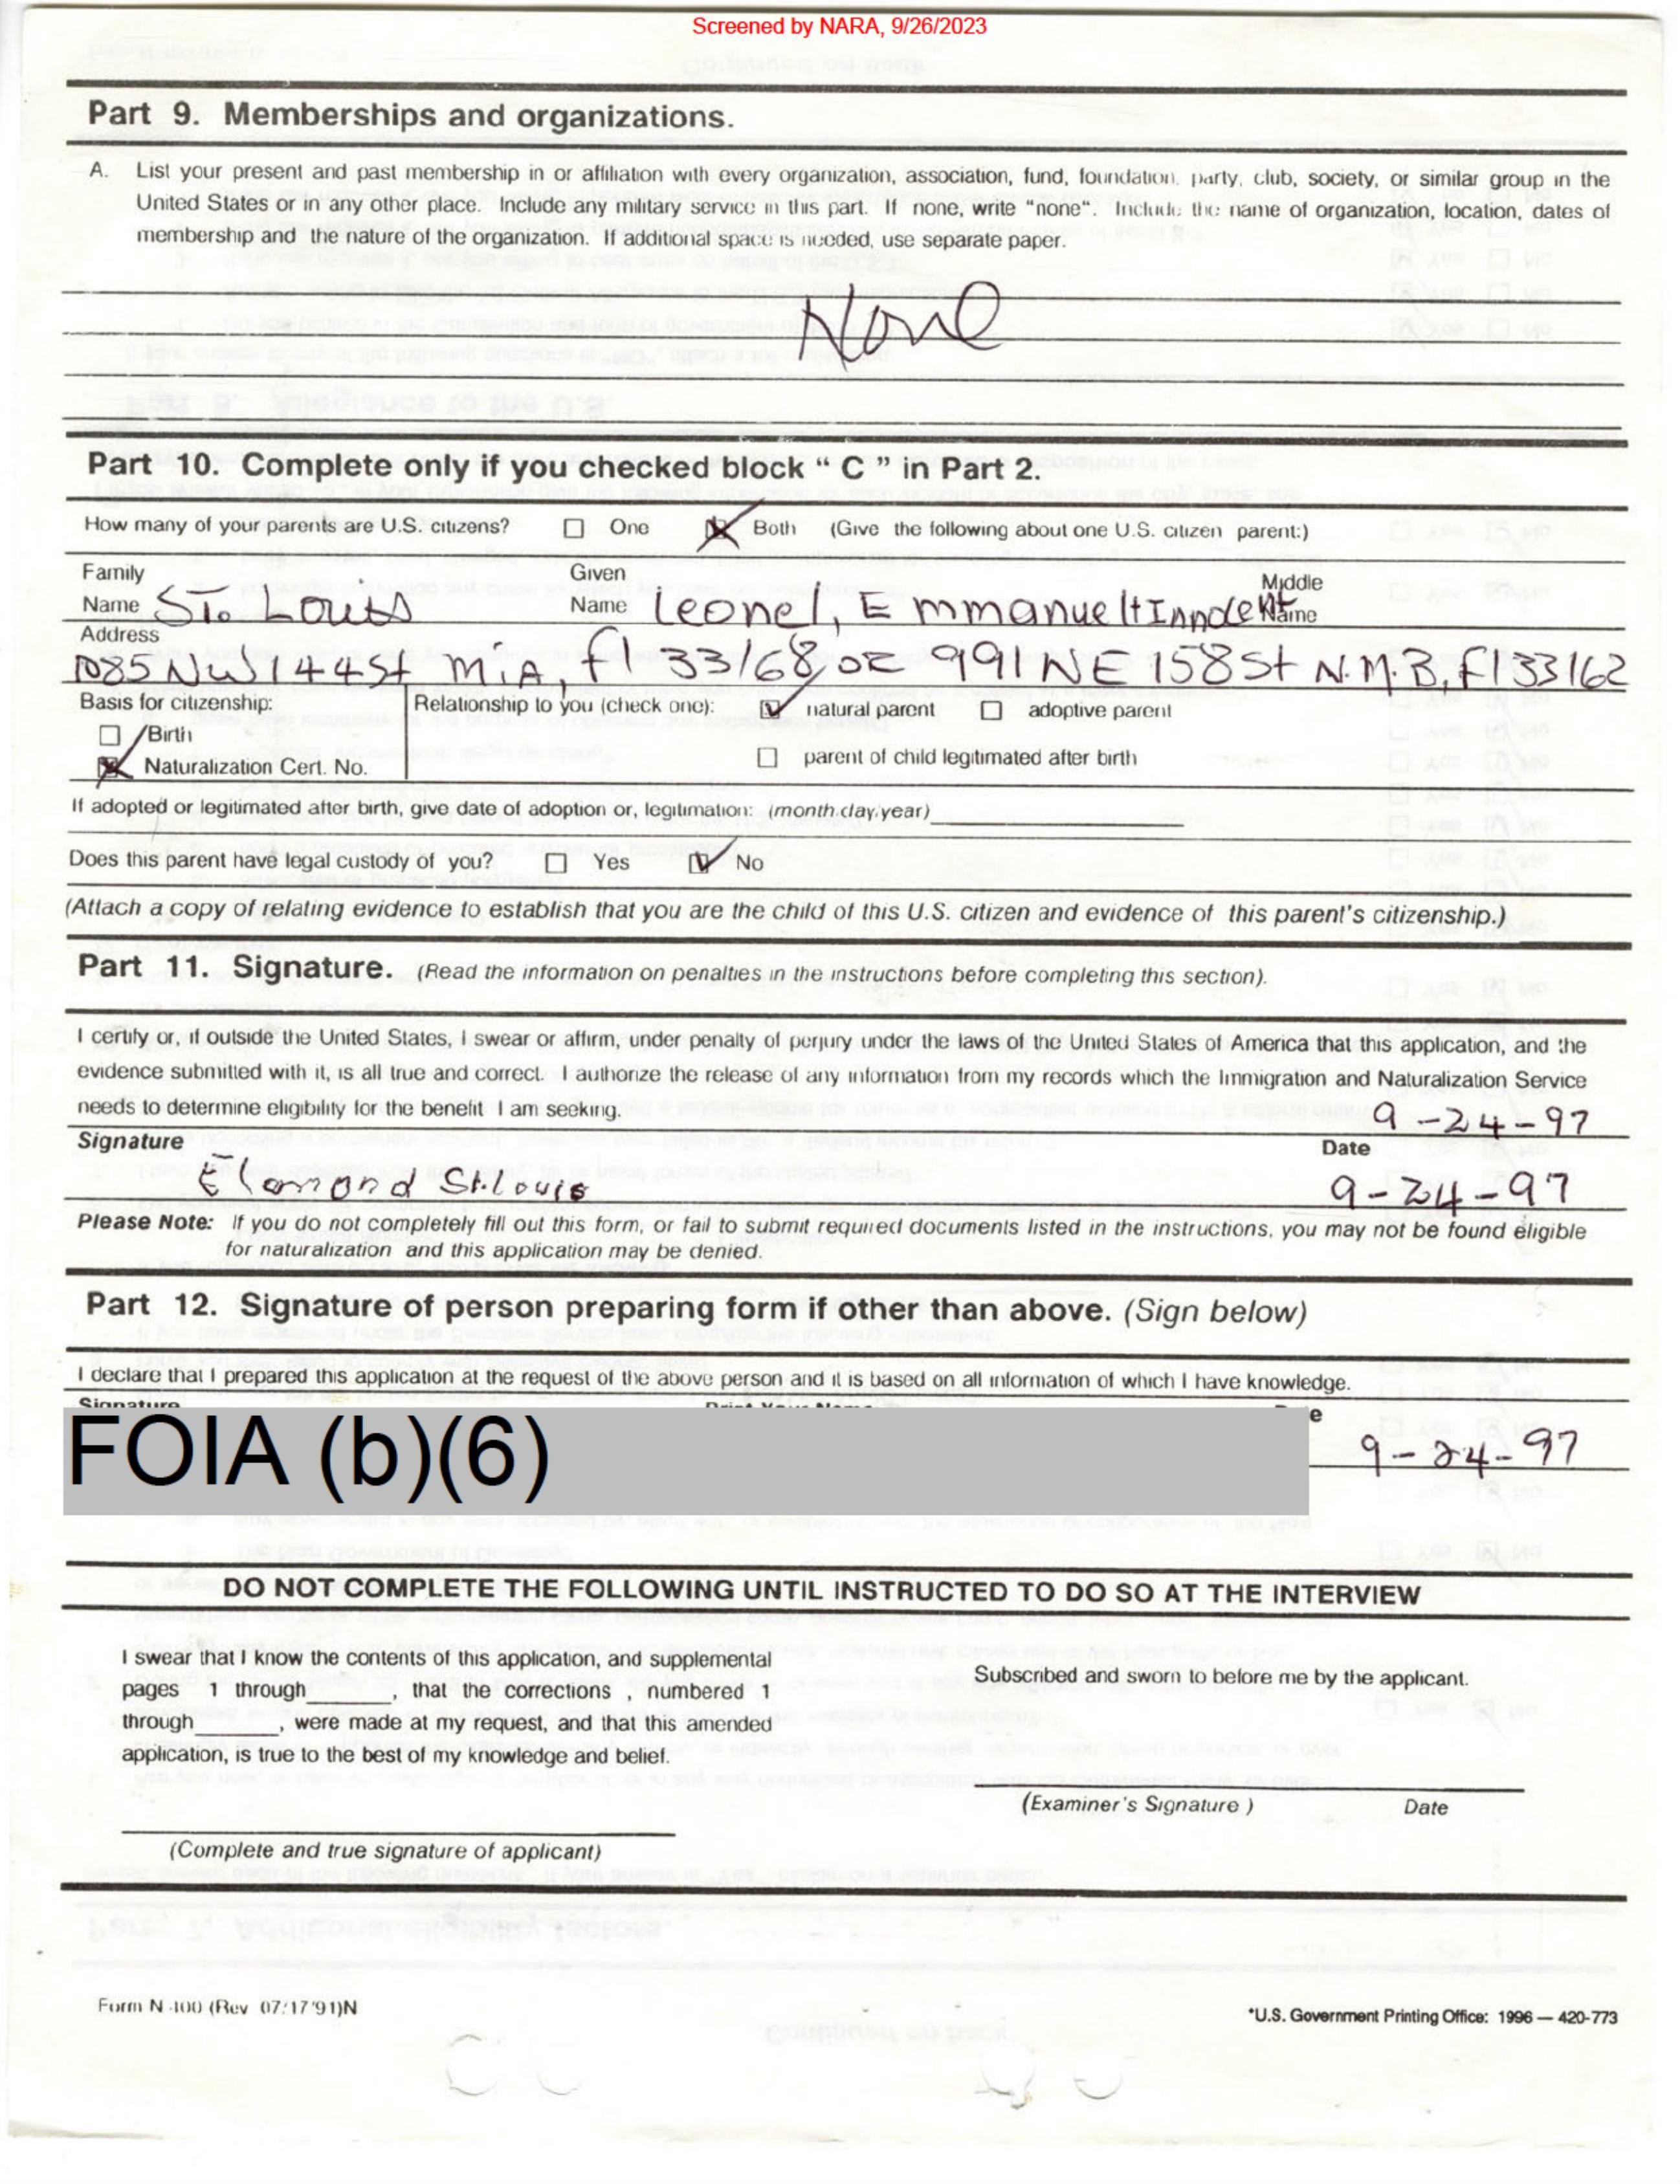 Screened by NARA, 9/26/2023
Part 9. Memberships and organizations.
A. List your present and past membership in or affiliation with every organization, association, fund, foundation, party, club, society, or similar group in the
United States or in any other place. Include any military service in this part. If none, write "none". Include the name of organization, location, dates of
membership and the nature of the organization. If additional space is needed, use separate paper.
None
Part 10. Complete only if you checked block " C " in Part 2.
How many of your parents are U.S. citizens? One Both (Give the following about one U.S. citizen parent:)
Family Given Middle
Name St. Louis Name Leonel, Emmanuel+Innocent Name
Address
1085 NW 144 St MiA, fl 33168, or 991 NE 158 St N.M.B, fl 33162
Basis for citizenship: Relationship to you (check one): natural parent adoptive parent
Birth
Naturalization Cert. No. parent of child legitimated after birth
If adopted or legitimated after birth, give date of adoption or, legitimation: (month/day/year)
Does this parent have legal custody of you? Yes No
(Attach a copy of relating evidence to establish that you are the child of this U.S. citizen and evidence of this parent's citizenship.)
Part 11. Signature. (Read the information on penalties in the instructions before completing this section).
I certify or, if outside the United States, I swear or affirm, under penalty of perjury under the laws of the United States of America that this application, and the
evidence submitted with it, is all true and correct. I authorize the release of any information from my records which the Immigration and Naturalization Service
needs to determine eligibility for the benefit I am seeking. 9-24-97
Signature Date
Elamond St.Louis 9-24-97
Please Note: If you do not completely fill out this form, or fail to submit required documents listed in the instructions, you may not be found eligible
for naturalization and this application may be denied.
Part 12. Signature of person preparing form if other than above. (Sign below)
I declare that I prepared this application at the request of the above person and it is based on all information of which I have knowledge.
Signature Print Your Name Date
FOIA (b)(6) 9-24-97
DO NOT COMPLETE THE FOLLOWING UNTIL INSTRUCTED TO DO SO AT THE INTERVIEW
I swear that I know the contents of this application, and supplemental
pages 1 through______, that the corrections , numbered 1
through______, were made at my request, and that this amended
application, is true to the best of my knowledge and belief.
(Complete and true signature of applicant)
Subscribed and sworn to before me by the applicant.
(Examiner's Signature ) Date
Form N-400 (Rev 07/17/91)N
*U.S. Government Printing Office: 1996 — 420-773